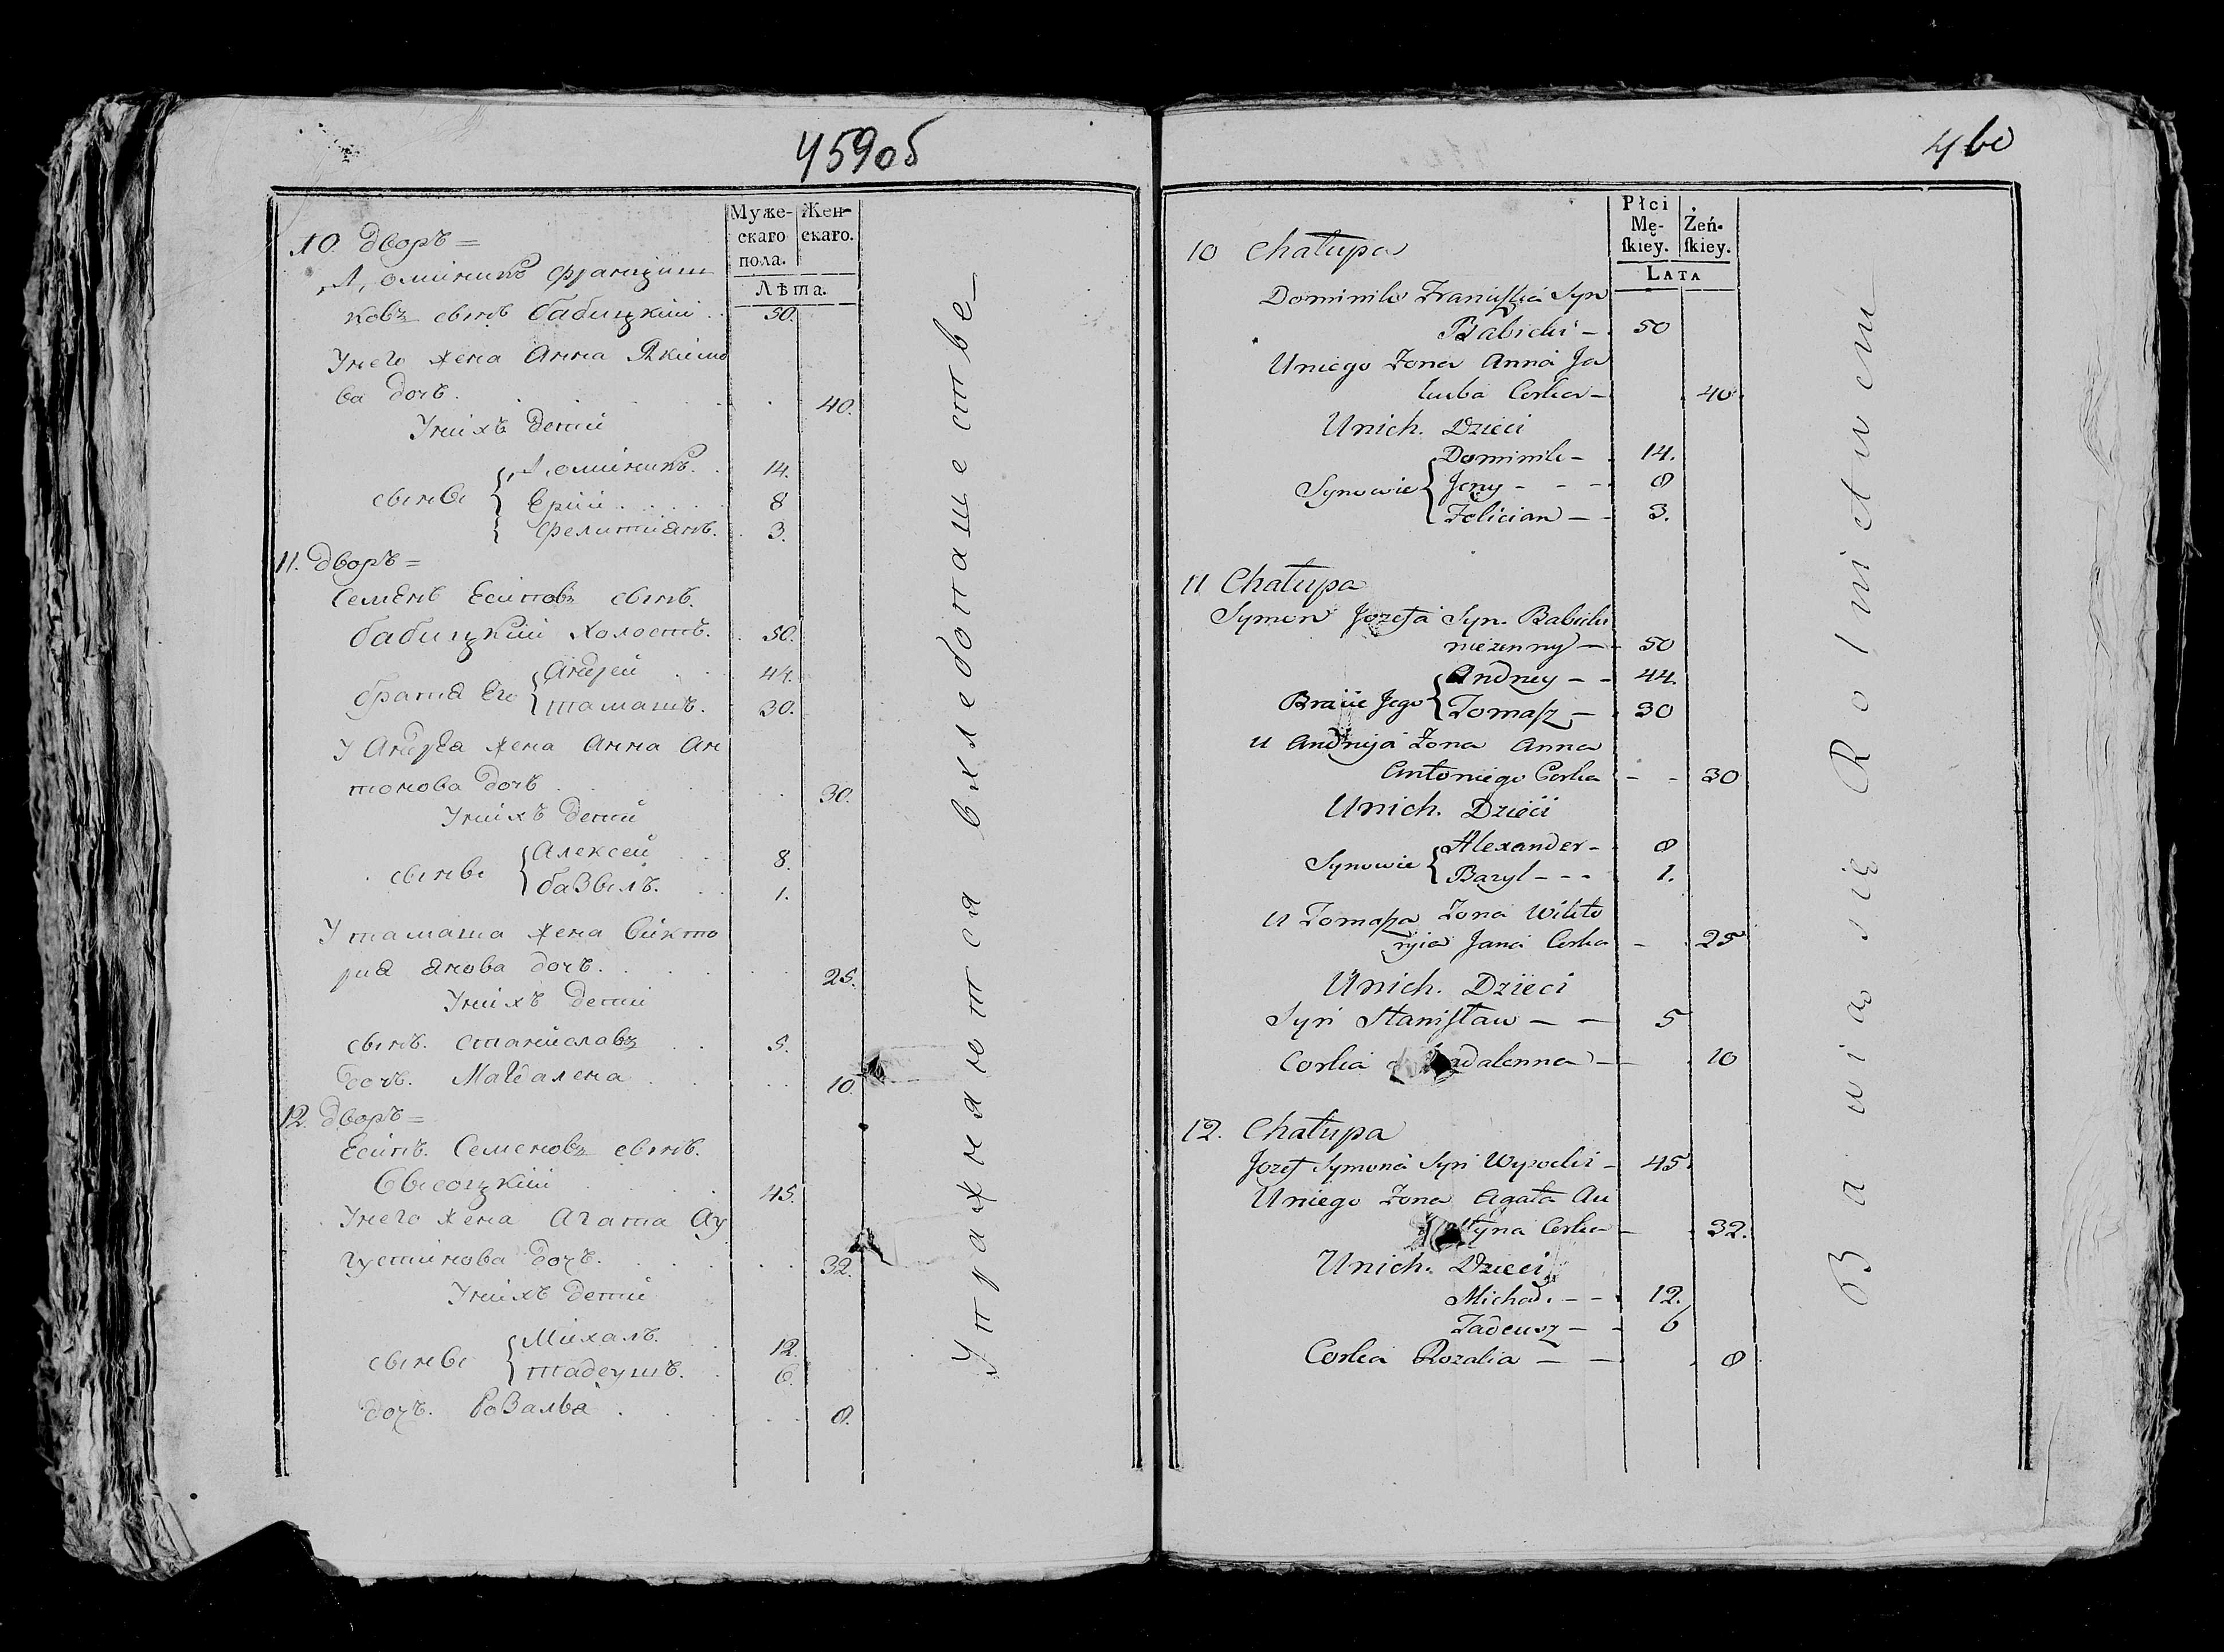 459об
Муже-
скаго
пола.
Жен-
скаго.
Лѣта.
10. дворъ =
Доминикъ Францишъ
ковъ сынъ бабицкий . 50.
Унего жена Анна Якимо
ва дочъ . . . . 40.
Унихъ дети
сыны { Доминикъ . 14.
Ерий . . . . 8
Фелитиянъ . 3.
11. дворъ =
Семенъ Есиповъ сынъ.
бабицкий холостъ . 50.
братя Его { Андрей . . 44.
тамашъ . 30.
У Андрея жена Анна Ан
тонова дочъ . . . 30.
Унихъ дети
сыны { Алексей . . 8.
базылъ . . 1.
У тамаша жена Викто
рия янова дочъ . . . . 25.
Унихъ дети
сынъ. Станиславъ . . 5.
дочъ. Магдалена . . . . 10.
12. дворъ =
Есипъ. Семеновъ сынъ.
Высоцкий . . . 45.
Унего жена Агата Ау
густинова дочъ . . . . 32.
Унихъ дети
сыны { Михалъ . . 12.
тадеушъ . 6.
дочъ. Розалья . . . . 8.
Упражняются вхлебопашестве_
460
Płci
Mę-
ſkiey.
Żeń-
ſkiey.
LATA
10 Chałupa
Dominik Franciſzka Syn
Babicki — 50
Uniego Zona Anna Ja
kuba Corka — 40
Unich. Dzieci
Synowie { Dominik — 14.
Jerzy - - - 8
Felician — - 3.
11 Chałupa
Symon Jozefa Syn. Babicki
niezenny — - 50
Bracie Jego { Andrzey - - 44.
Tomaſz — . 30
u Andrzeja Zona Anna
Antoniego Corka - - 30
Unich. Dzieci
Synowie { Alexander - 8
Bazyl - - - 1.
u Tomaſza Zona Wikto
ryia Jana Corka - 25
Unich. Dzieci
Syn Staniſław — — 5
Corka adalenna — 10
12. Chałupa
Jozef Symona Syn Wysocki - 45
Uniego Zona Agata Au
styna Corka — 32.
Unich. Dzieci
Michał. - - 12.
Tadeusz — - 6
Corka Rozalia — — 8
Bawią się Rolnictwem